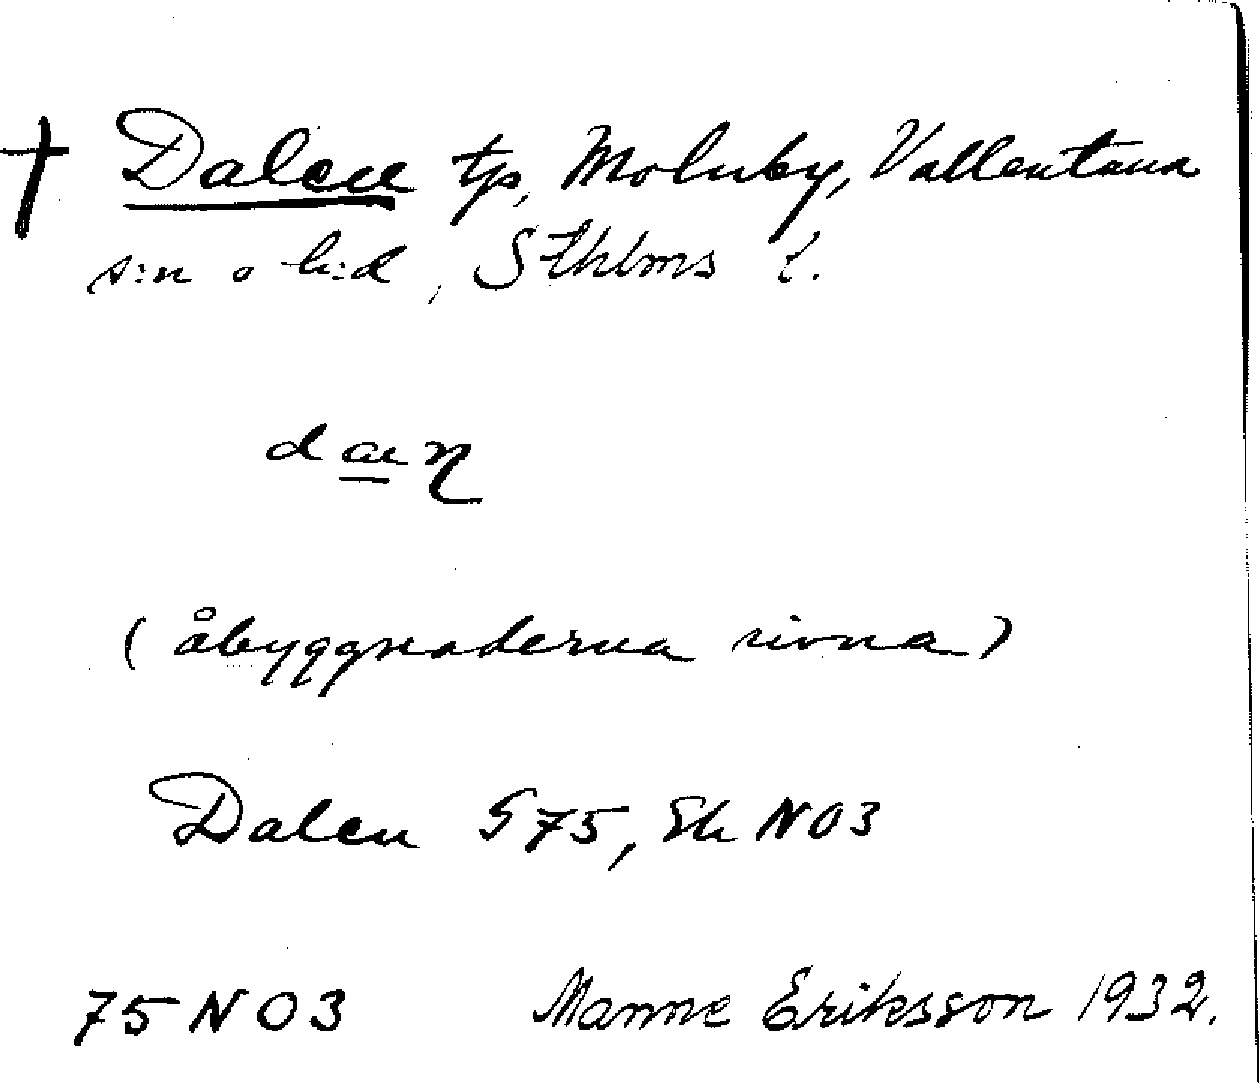 † Dalen tp, Molnby, Vallentuna
s:n o h:d, Sthlms l.
(åbyggnaderna rivna)
Dalen S75, Ek NO3
75 NO3 Manne Eriksson 1932.